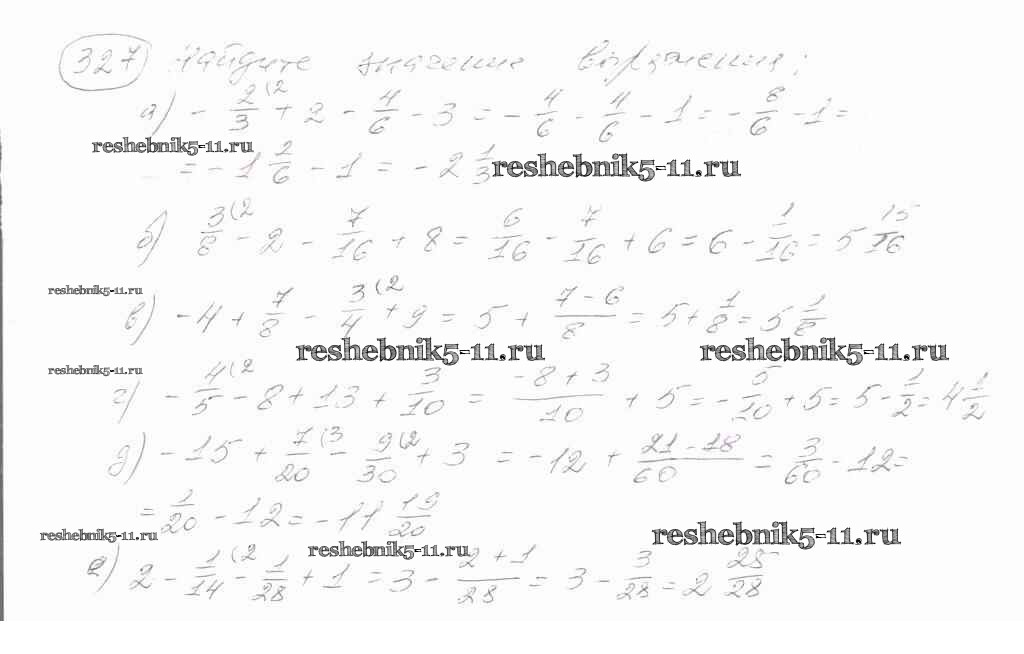 327 Найдите значение выражения:
а) - 2/3 (2 + 2 - 4/6 - 3 = - 4/6 - 4/6 - 1 = - 8/6 - 1 =
reshebnik5-11.ru
= - 1 2/6 - 1 = - 2 1/3 reshebnik5-11.ru
б) 3/8 (2 - 2 - 7/16 + 8 = 6/16 - 7/16 + 6 = 6 - 1/16 = 5 15/16
reshebnik5-11.ru
в) - 4 + 7/8 - 3/4 (2 + 9 = 5 + (7 - 6)/8 = 5 + 1/8 = 5 1/8
reshebnik5-11.ru reshebnik5-11.ru
reshebnik5-11.ru
г) - 4/5 (2 - 8 + 13 + 3/10 = (-8 + 3)/10 + 5 = - 5/10 + 5 = 5 - 1/2 = 4 1/2
д) - 15 + 7/20 (3 - 9/30 (2 + 3 = - 12 + (21 - 18)/60 = 3/60 - 12 =
= 1/20 - 12 = - 11 19/20
reshebnik5-11.ru reshebnik5-11.ru reshebnik5-11.ru
е) 2 - 1/14 (2 - 1/28 + 1 = 3 - (2 + 1)/28 = 3 - 3/28 = 2 25/28